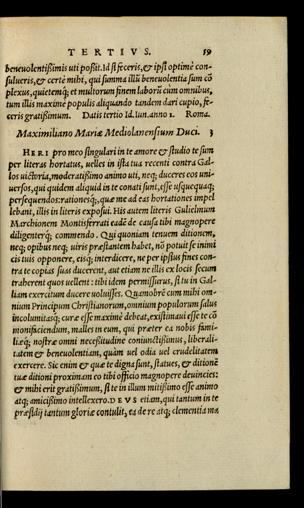 TERTIVS. 19
beneuolentißimis uti poßit. Id si feceris, & ipsi optimè con-
sulueris, & certè mihi, qui summa illũ beneuolentia sum cõ
plexus, quietemq́; et multorum finem laborũ cùm omnibus,
tum illis maxime populis aliquando tandem dari cupio, fe-
ceris gratißimum. Datis tertio Id. Iun. anno 1. Roma.
Maximiliano Mariæ Mediolanensium Duci. 3
HERI pro meo singulari in te amore & studio te sum
per literas hortatus, uelles in ista tua recenti contra Gal-
los uictoria, moderatißimo animo uti, neq; duceres eos uni-
uersos, qui quidem aliquid in te conati sunt, esse usquequaq;
persequendos: rationesq́;, quæ me ad eas hortationes impel
lebant, illis in literis exposui. His autem literis Gulielmum
Marchionem Montisferrati eadẽ de causa tibi magnopere
diligenterq́; commendo. Qui quoniam tenuem ditionem,
neq; opibus neq; uiris præstantem habet, nõ potuit se inimi
cis tuis opponere, eisq́; interdicere, ne per ipsius fines con-
tra te copias suas ducerent, aut etiam ne illis ex locis secum
traherent quos uellent: tibi idem permissurus, si tu in Gal-
liam exercitum ducere uoluisses. Quamobrẽ cum mihi om-
nium Principum Christianorum, omnium populorum salus
incolumitasq́; curæ esse maximè debeat, existimaui esse te cõ
monifaciendum, malles in eum, qui præter ea nobis fami-
liæq́; nostræ omni necesitudine coniunctißimus, liberali-
tatem & beneuolentiam, quàm uel odia uel crudelitatem
exercere. Sic enim & quæ te digna sunt, statues, & ditionẽ
tuæ ditioni proximam eo tibi officio magnopere deuincies:
& mihi erit gratißimum, si te in illum mitißimo esse animo
atq; amicißimo intellexero. DEVS etiam, qui tantum in te
præsidij tantum gloriæ contulit, ea de re atq; clementia ma